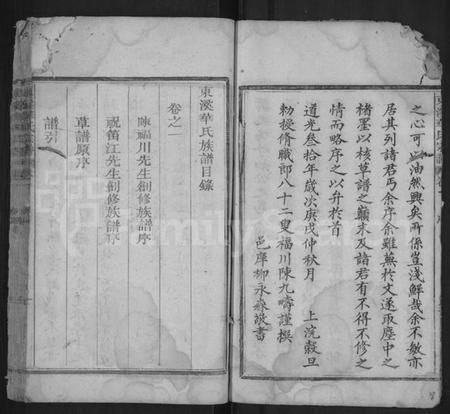 之心可以油然興矣所係豈淺鮮哉余不敏亦
居其列諸君丐余序余雖蕪於文遂取塵中之
楮墨以核草譜之顛末及諸君有不得不修之
情而略序之以弁於首
道光叁拾年歲次庚戌仲秋月 上浣穀旦
勅授脩職郎八十二叟福川陳九疇謹撰
邑庠柳永森敬書
東溪華氏族譜目錄
卷之一
陳福川先生創修族譜序
祝笛江先生創修族譜序
草譜原序
譜引